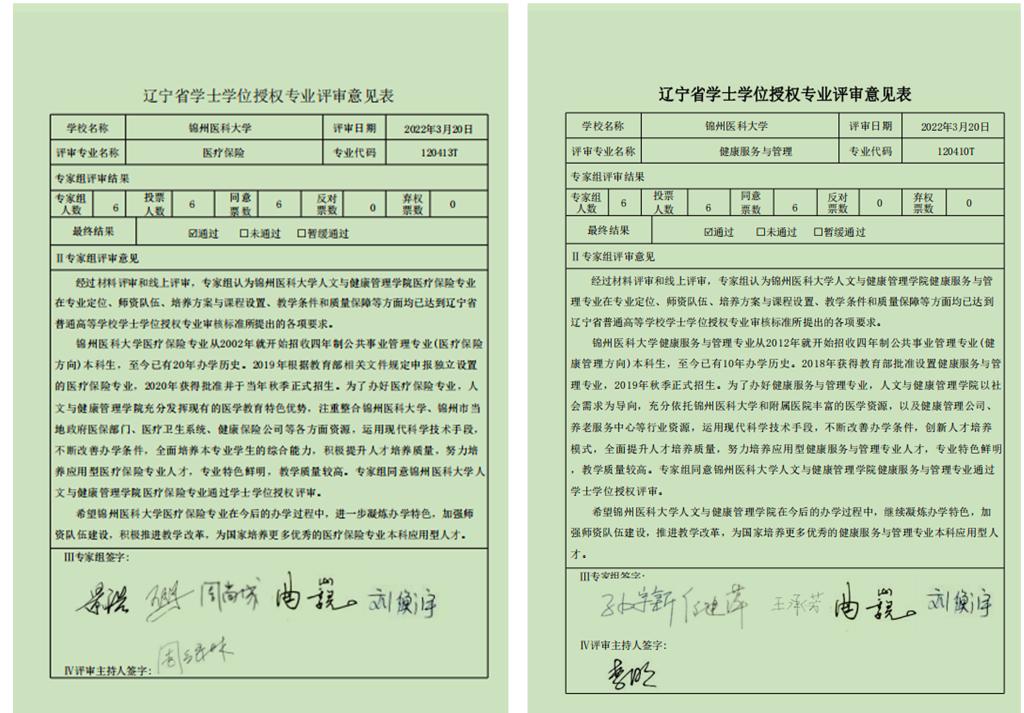 辽宁省学士学位授权专业评审意见表
学校名称 锦州医科大学 评审日期 2022年3月20日
评审专业名称 医疗保险 专业代码 120413T
专家组评审结果
专家组人数 6 投票人数 6 同意票数 6 反对票数 0 弃权票数 0
最终结果 ☑通过 ☐未通过 ☐暂缓通过
II专家组评审意见
经过材料评审和线上评审，专家组认为锦州医科大学人文与健康管理学院医疗保险专业
在专业定位、师资队伍、培养方案与课程设置、教学条件和质量保障等方面均已达到辽宁省
普通高等学校学士学位授权专业审核标准所提出的各项要求。
锦州医科大学医疗保险专业从2002年就开始招收四年制公共事业管理专业(医疗保险
方向)本科生，至今已有20年办学历史。2019年根据教育部相关文件规定申报独立设置
的医疗保险专业，2020年获得批准并于当年秋季正式招生。为了办好医疗保险专业，人
文与健康管理学院充分发挥现有的医学教育特色优势，注重整合锦州医科大学、锦州市当
地政府医保部门、医疗卫生系统、健康保险公司等各方面资源，运用现代科学技术手段，
不断改善办学条件，全面培养本专业学生的综合能力，积极提升人才培养质量，努力培
养应用型医疗保险专业人才，专业特色鲜明，教学质量较高。专家组同意锦州医科大学人
文与健康管理学院医疗保险专业通过学士学位授权评审。
希望锦州医科大学医疗保险专业在今后的办学过程中，进一步凝炼办学特色，加强师
资队伍建设，积极推进教学改革，为国家培养更多优秀的医疗保险专业本科应用型人才。
III专家组签字:
刘俊宇
IV评审主持人签字:
辽宁省学士学位授权专业评审意见表
学校名称 锦州医科大学 评审日期 2022年3月20日
评审专业名称 健康服务与管理 专业代码 120410T
专家组评审结果
专家组人数 6 投票人数 6 同意票数 6 反对票数 0 弃权票数 0
最终结果 ☑通过 ☐未通过 ☐暂缓通过
II专家组评审意见
经过材料评审和线上评审，专家组认为锦州医科大学人文与健康管理学院健康服务与管
理专业在专业定位、师资队伍、培养方案与课程设置、教学条件和质量保障等方面均已达到
辽宁省普通高等学校学士学位授权专业审核标准所提出的各项要求。
锦州医科大学健康服务与管理专业从2012年就开始招收四年制公共事业管理专业(健
康管理方向)本科生，至今已有10年办学历史。2018年获得教育部批准设置健康服务与管
理专业，2019年秋季正式招生。为了办好健康服务与管理专业，人文与健康管理学院以社
会需求为导向，充分依托锦州医科大学和附属医院丰富的医学资源，以及健康管理公司、
养老服务中心等行业资源，运用现代科学技术手段，不断改善办学条件，创新人才培养
模式，全面提升人才培养质量，努力培养应用型健康服务与管理专业人才，专业特色鲜明
，教学质量较高。专家组同意锦州医科大学人文与健康管理学院健康服务与管理专业通过
学士学位授权评审。
希望锦州医科大学人文与健康管理学院在今后的办学过程中，继续凝炼办学特色，加
强师资队伍建设，推进教学改革，为国家培养更多优秀的健康服务与管理专业本科应用型人
才。
III专家组签字:
王承芳 刘俊宇
IV评审主持人签字: